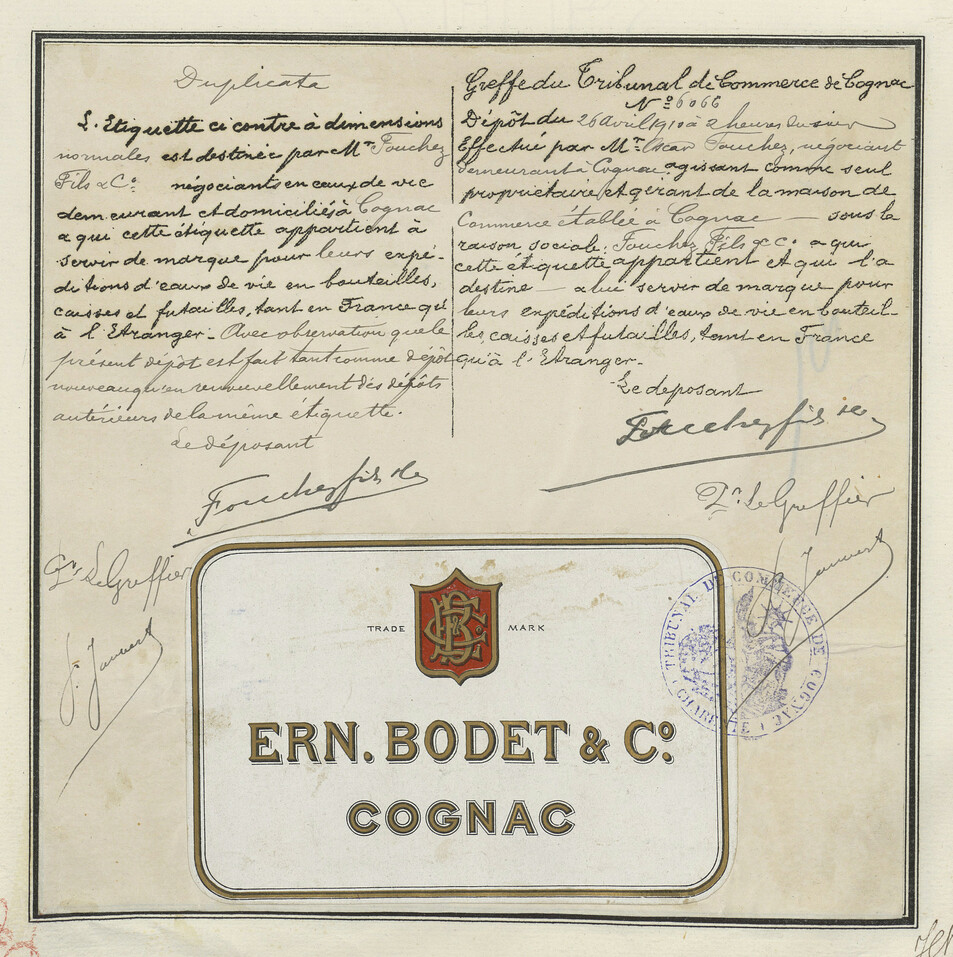 Duplicata
L'Etiquette ci contre à dimensions
normales est destinée par Mrs Fouchez
Fils & Co. négociants en eaux de vie
demeurant et domiciliés à Cognac
a qui cette étiquette appartient à
servir de marque pour leurs expé-
ditions d'eaux de vie en bouteilles,
caisses et futailles, tant en France qu'
à l'Etranger. Avec observation que le
présent dépôt est fait tant comme dépôt
nouveau qu'en renouvellement des dépôts
antérieurs de la même étiquette.
Le déposant
Fouchez fils & Co
Pr. Le Greffier
J. Jauvert
Greffe du Tribunal de Commerce de Cognac
No 6066
Dépôt du 26 avril 1910 à 2 heures du soir
Effectué par Mr. Oscar Fouchez, négociant
demeurant à Cognac, agissant comme seul
propriétaire et gérant de la maison de
Commerce établie à Cognac sous la
raison sociale: Fouchez Fils & Co. a qui
cette étiquette appartient et qui l'a
destine a lui servir de marque pour
leurs expéditions d'eaux de vie en bouteil-
les, caisses et futailles, tant en France
qu'à l'Etranger.
Le deposant
Fouchez fils & Co
Pr. Le Greffier
J. Jauvert
TRIBUNAL DE COMMERCE DE COGNAC
CHARENTE
TRADE MARK
B & Co
ERN. BODET & Co.
COGNAC